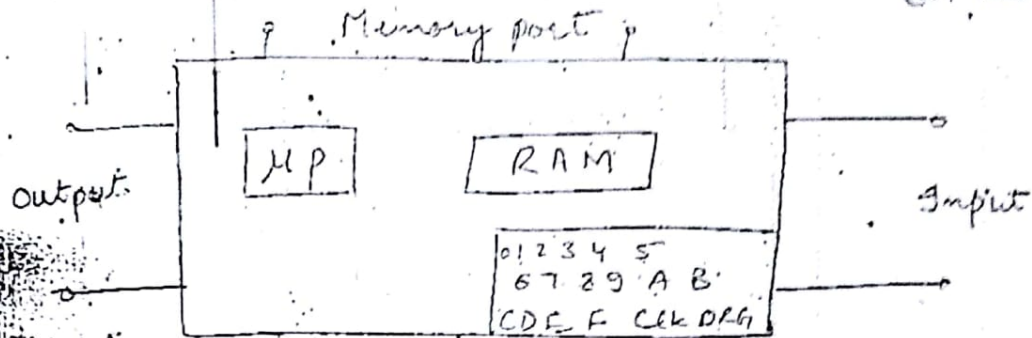 Memory port
μP
RAM
Output
Input
0 1 2 3 4 5
6 7 8 9 A B
C D E F Clk DRG